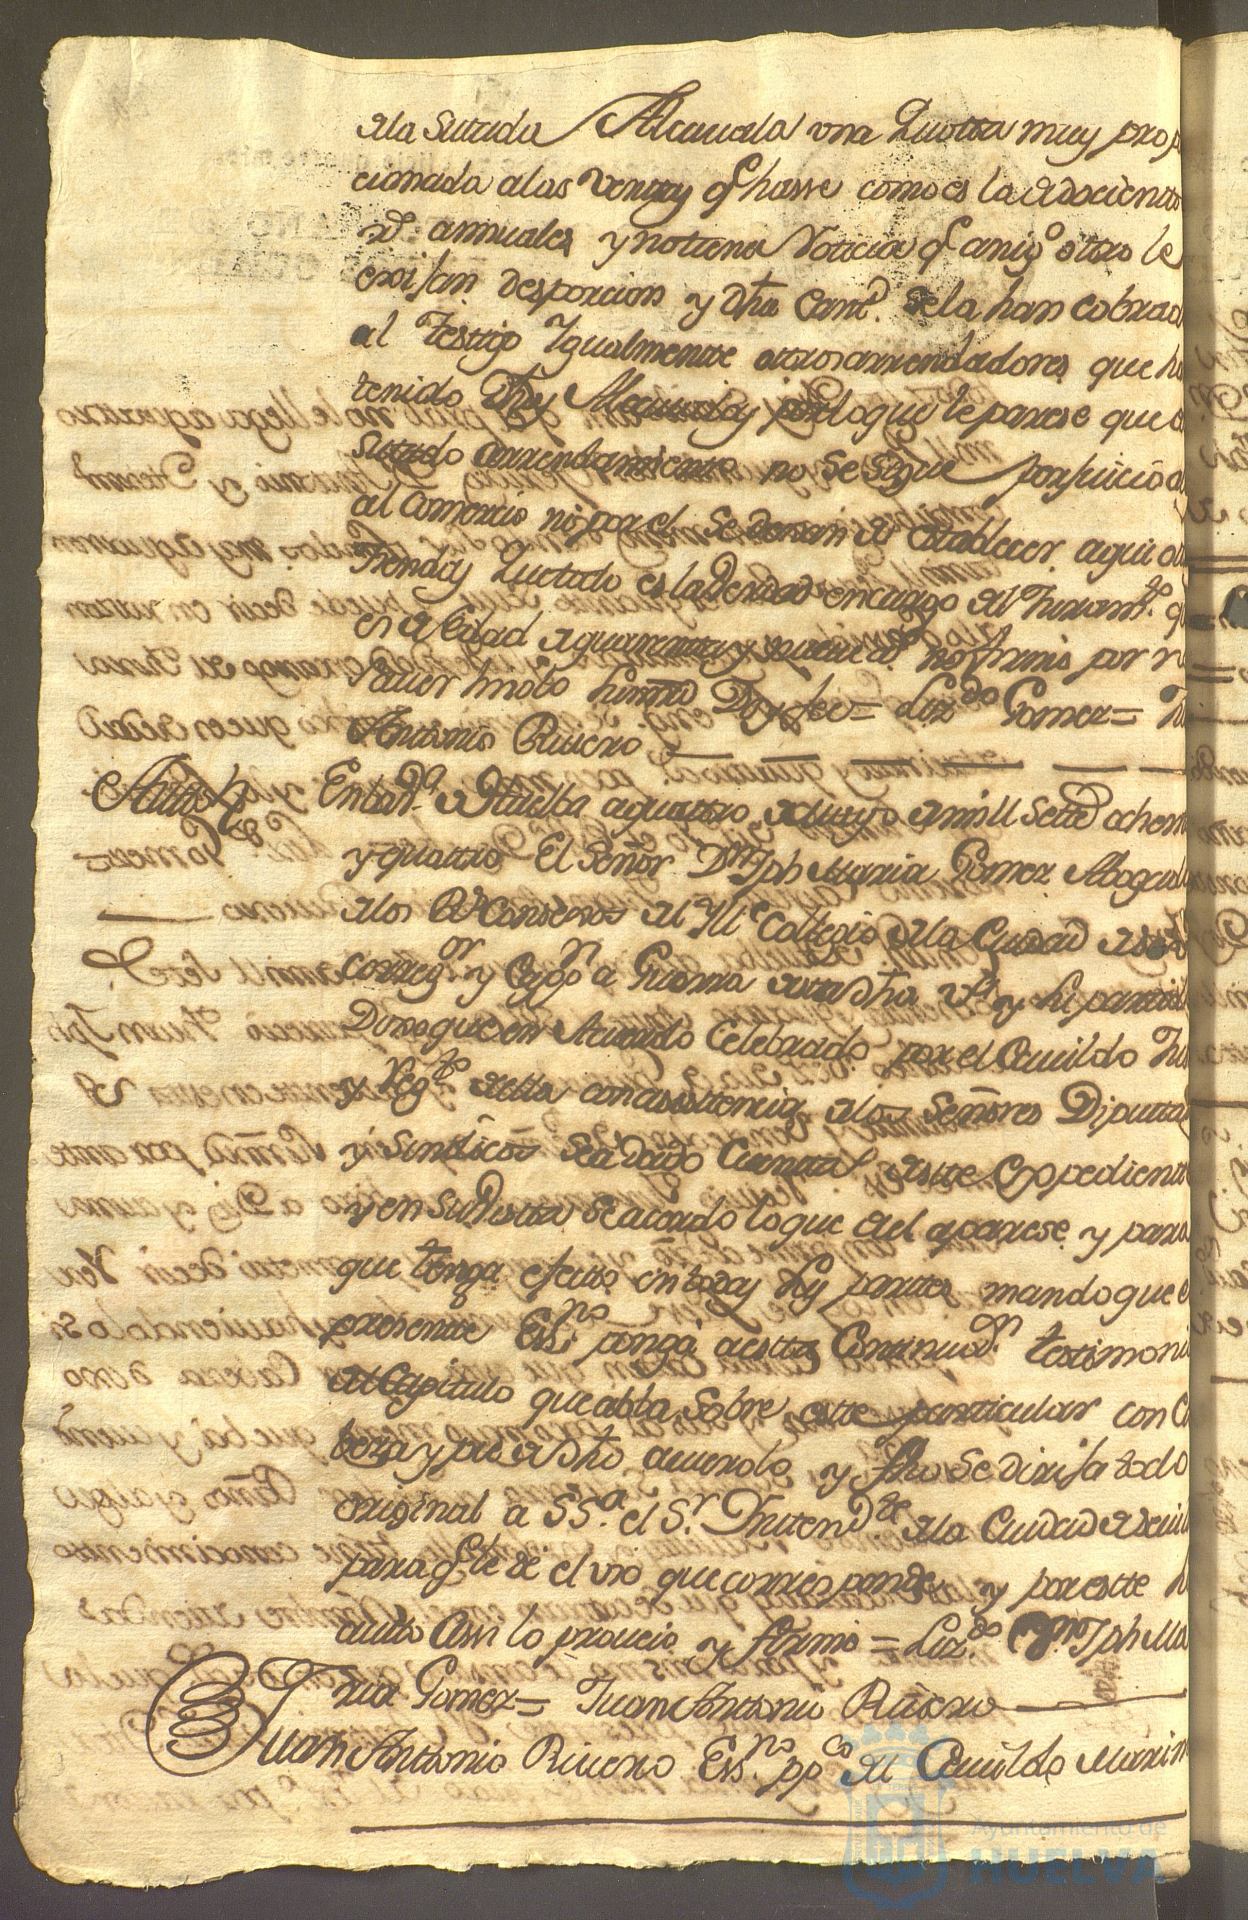 ala Sitada Alcavala una Quotta muy prop
cionada alas Ventas q hasse como es la de docientos
rs. annuales y no ttiene Noticia q aning.º otro le
exijan desporcion y dha Cantd. sela han cobrado
al Testigo Igualmente otros arrendadores que ha
tenido Dhas Alcavalas por lo que le parese que de
Sittado arrendamiento no se sigue perjuicio al
al Comercio ni por el Se dexan de establecer aqui ottas
Tiendas Que todo es la Verdad en cargo del Juramto. q
es de edad de quarenta y nueve as. no firmó por no
saver hizolo Su md Doy fee = Lizdo Gomez = Ju
Antonio Rivero
Auto En la Va. de Huelba a quattro de Junio de mill Settes ochenta
y quattro El Señor Dn Jph Maria Gomez Abogado
de los Rs. Consejos del Ille Collegio de la Ciudad de
Correxor. y Capn a Guerra de esta dha Va. y su partido
Dixo que en Acuerdo Celebrado por el Cavildo Jus
y Regto de ella con asistencia de los Señores Diputtad
y Sindicos Se a dado Cuentta de este expediente
y en su Vista Se acordo lo que de el aparese y para
que tenga efecto en todas sus parttes mando que el
presente Essno ponga a esta Continuon testimoni
del Capitulo que abla Sobre este particular con Ca
beza y pie de Dho acuerdo y fho Se dirija todo
original a SSa. el Sr. Yntendte de la Ciudad de Sevill
para q le de el uso que corresponde y por este su
auto Assi lo proveio y firmó = Lizdo. Dn. Jph Ma
ria Gomez = Juan Antonio Rivero
Juan Antonio Rivero Essno ppco del Cavildo
Ayuntamiento de
HUELVA